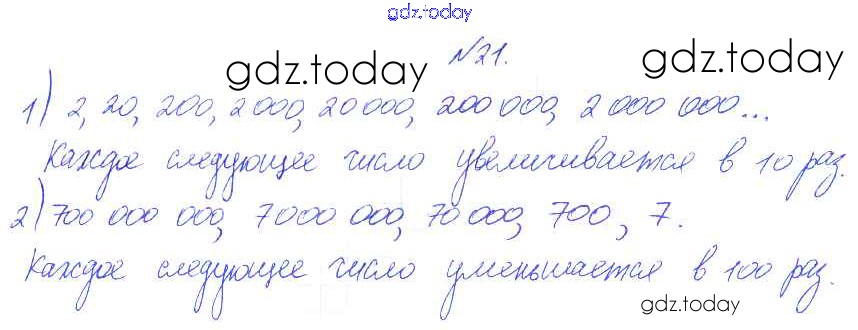 gdz.today
№21.
gdz.today gdz.today
1) 2, 20, 200, 2 000, 20 000, 200 000, 2 000 000...
Каждое следующее число увеличивается в 10 раз.
2) 700 000 000, 7 000 000, 70 000, 700, 7.
Каждое следующее число уменьшается в 100 раз.
gdz.today